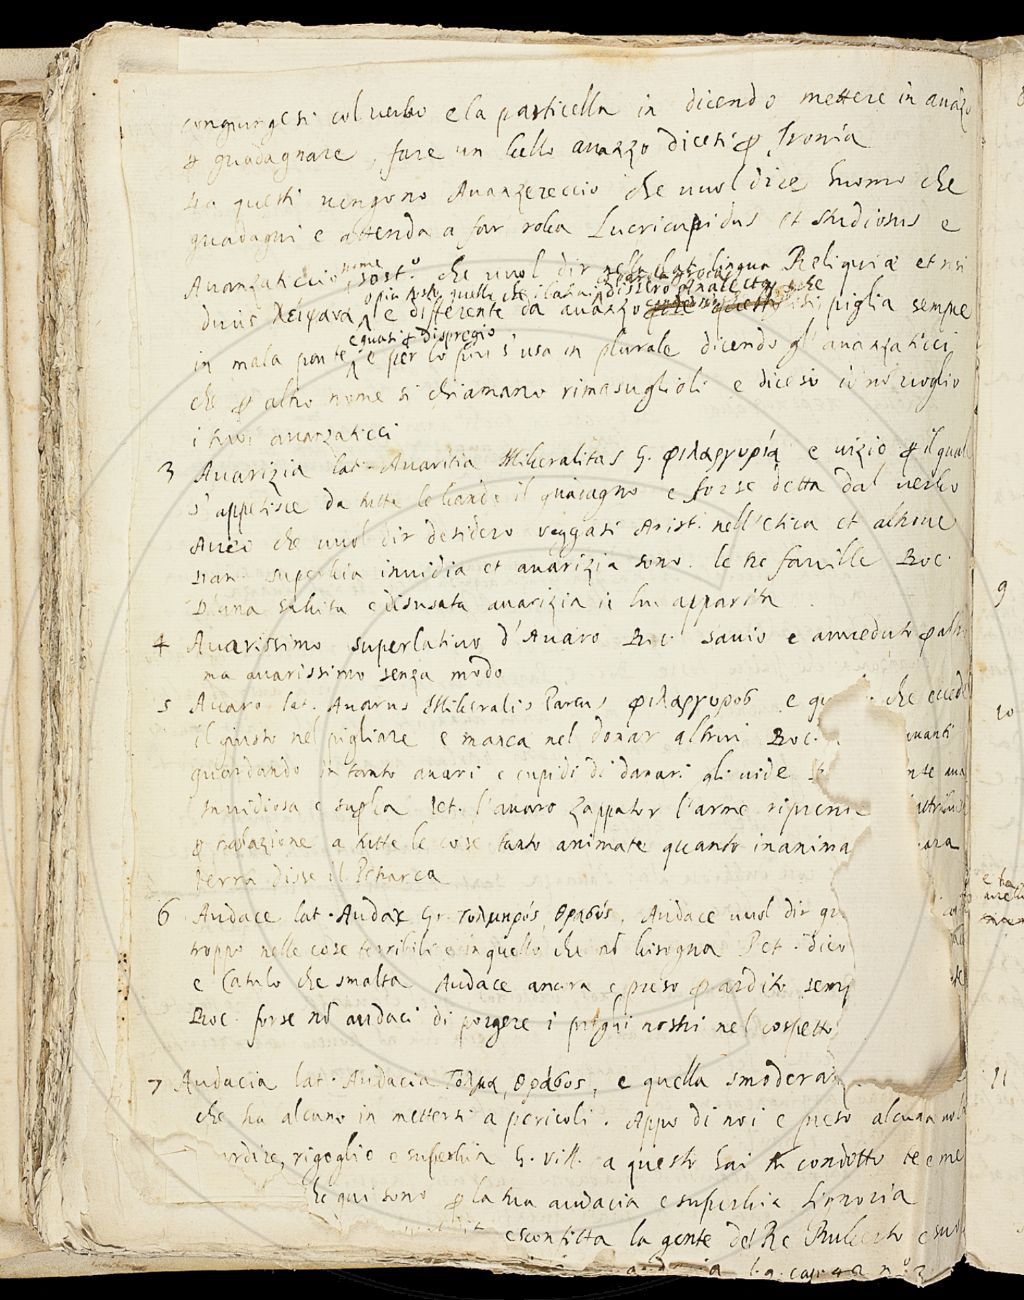 congiungesi col uerbo e la particella in dicendo mettere in auãzo
guadagnare, fare un bello auanzo dicesi ꝑ Ironia
da questi uengono Auanzereccio che uuol dire huomo che
guadagni e attenda a far roba Lucricupidus et studiosus e
Auanzaticcio nome sost.º che uuol dir nella lat. lingua Reliquiæ et
o piu tosto quelle che i latini dissero Analecta
duuis λείψανα e differente da auanzo piglia sempre
e quasi ꝑ dispregio
in mala parte e per lo piu s'usa in plurale dicendo gl'auanzaticci
che ꝑ altro nome si chiamano rimasuglioli e dicesi io nõ uoglio
i tuoi auanzaticci
3 Auarizia lat. Auaritia Illiberalitas G. φιλαργυρία e uizio ꝑ il quale
s'appetisce da tutte le bande il guadagno e forse detta dal uerbo
Aueo che uuol dir desidero ueggasi Arist. nell'Etica et altroue
Dan. superbia inuidia et auarizia sono le tre fauille Boc.
D'una subita e disusata auarizia in lui apparita
4 Auarissimo superlatiuo d'Auaro Boc. sauio e aueduto ꝑ altro
ma auarissimo senza modo
5 Auaro lat. Auarus Illiberalis Parcus φιλαργυρος e che ecced
il giusto nel pigliare e manca nel donar altrui Boc. quanti
guardando in tanto auari e cupidi di danari gli uide
Inuidiosa e supba Pet. l'auaro zappator l'arme riprende
ꝑ traslazione a tutte le cose tanto animate quanto inanima
terra disse il Petrarca
6 Audace lat. Audax Gr. τολμηρός, θρασύς, Audace uuol dir
troppo nelle cose terribili e in quello che nõ bisogna Pet. dico
e Catulo che smalta Audace ancora e preso ꝑ ardito
Boc. forse nõ audaci di porgere i prieghi nostri nel cospetto
7 Audacia lat. Audacia τόλμα, θράσος, e quella smodera
che ha alcuno in mettersi a pericoli. Appo di noi e preso alcuna uol
ardire, rigoglio e superbia G. Vill. a questo hai tu condotto te e me
che qui sono ꝑ la tua audacia e superbia Signoria
e sconfitta la gente del Re Ruberto e
l. 9. cap. 42 nº 3
9
10
11